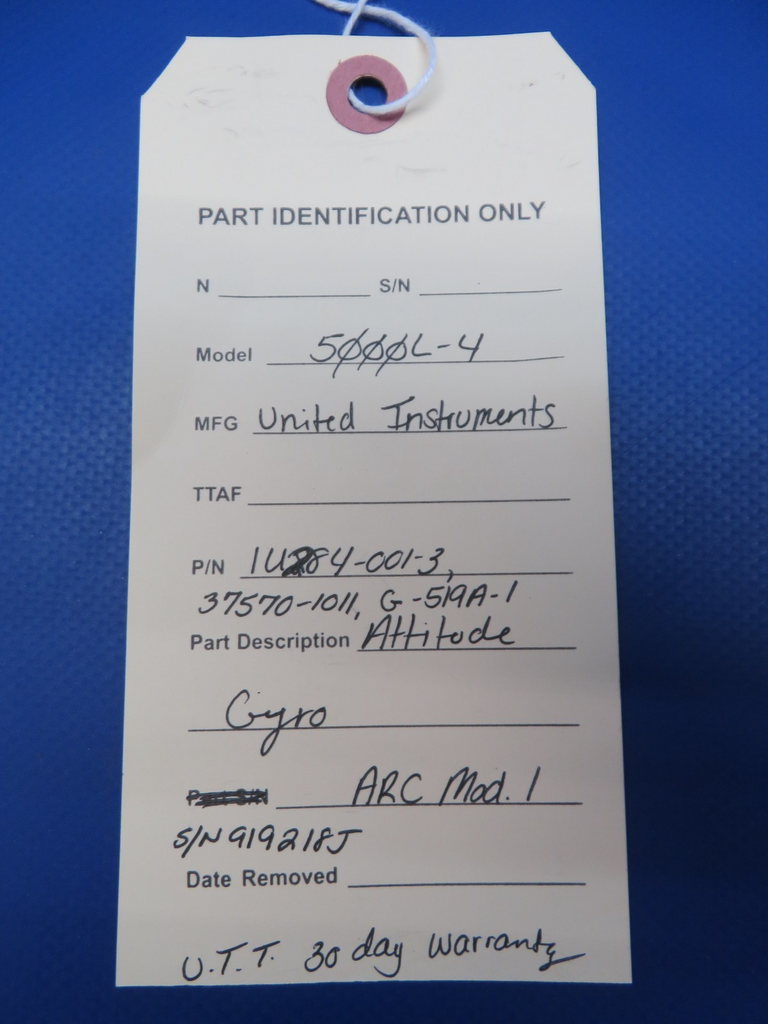 PART IDENTIFICATION ONLY
N S/N
Model 5000L-4
MFG United Instruments
TTAF
P/N 1U284-001-3,
37570-1011, G-519A-1
Part Description Attitude
Gyro
Part S/N ARC Mod. 1
S/N 919218J
Date Removed
U.T.T. 30 day warranty